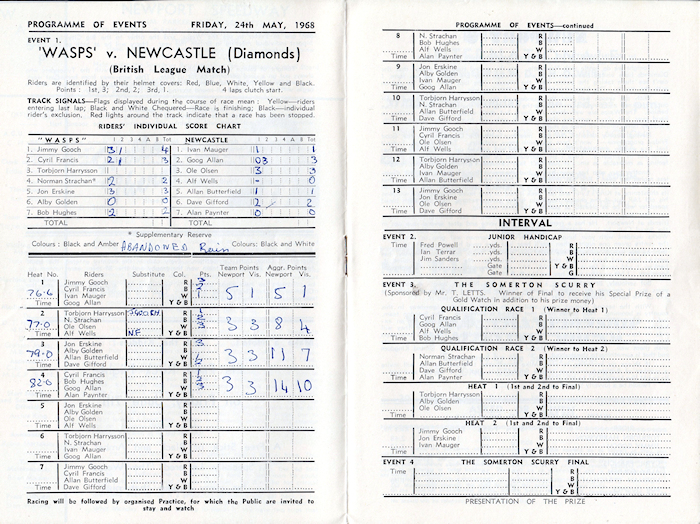 PROGRAMME OF EVENTS FRIDAY, 24th MAY, 1968
EVENT 1.
'WASPS' v. NEWCASTLE (Diamonds)
(British League Match)
Riders are identified by their helmet covers: Red, Blue, White, Yellow and Black.
Points : 1st, 3; 2nd, 2; 3rd, 1. 4 laps clutch start.
TRACK SIGNALS—Flags displayed during the course of race mean : Yellow—riders
entering last lap; Black and White Chequered—Race is finishing; Black—individual
rider's exclusion. Red lights around the track indicate that a race has been stopped.
RIDERS' INDIVIDUAL SCORE CHART
"WASPS" 1 2 3 4 A B Tot NEWCASTLE 1 2 3 4 A B Tot
1. Jimmy Gooch 3 1 4 1. Ivan Mauger 1 1
2. Cyril Francis 2 1 3 2. Goog Allan 0 3 3
3. Torbjorn Harrysson 3. Ole Olsen 3 3
4. Norman Strachan* 2 2 4. Alf Wells - 0
5. Jon Erskine 3 3 5. Allan Butterfield 1 1
6. Alby Golden 0 0 6. Dave Gifford 2 2
7. Bob Hughes 2 2 7. Alan Paynter 0 0
TOTAL TOTAL
* Supplementary Reserve
Colours : Black and Amber ABANDONED Rain Colours : Black and White
Heat No. Riders Substitute Col. Pts. Team Points Newport Vis. Aggr. Points Newport Vis.
1 Jimmy Gooch R 3
76.6 Cyril Francis B 2
Ivan Mauger W 1 5 1 5 1
Time Goog Allan Y & B
2 Torbjorn Harrysson J GOOCH R 1
77.0 N. Strachan B 2
Ole Olsen W 3 3 3 8 4
Time Alf Wells NF Y & B
3 Jon Erskine R 3
79.0 Alby Golden B
Allan Butterfield W 1 3 3 11 7
Time Dave Gifford Y & B
4 Cyril Francis R 1
82.0 Bob Hughes B 2
Goog Allan W 3 3 3 14 10
Time Alan Paynter Y & B
5 Jon Erskine R
Alby Golden B
Ole Olsen W
Time Alf Wells Y & B
6 Torbjorn Harrysson R
N. Strachan B
Ivan Mauger W
Time Goog Allan Y & B
7 Jimmy Gooch R
Cyril Francis B
Allan Butterfield W
Time Dave Gifford Y & B
Racing will be followed by organised Practice, for which the Public are invited to
stay and watch
PROGRAMME OF EVENTS—continued
8 N. Strachan R
Bob Hughes B
Alf Wells W
Time Alan Paynter Y & B
9 Jon Erskine R
Alby Golden B
Ivan Mauger W
Time Goog Allan Y & B
10 Torbjorn Harrysson R
N. Strachan B
Allan Butterfield W
Time Dave Gifford Y & B
11 Jimmy Gooch R
Cyril Francis B
Ole Olsen W
Time Alf Wells Y & B
12 Torbjorn Harrysson R
Bob Hughes B
Ivan Mauger W
Time Allan Butterfield Y & B
13 Jimmy Gooch R
Jon Erskine B
Ole Olsen W
Time Dave Gifford Y & B
INTERVAL
EVENT 2. JUNIOR HANDICAP
Time Fred Powell yds. R
Ian Terrar yds. B
Jim Sanders yds. W
Gate Y & B
Gate G
EVENT 3. THE SOMERTON SCURRY
(Sponsored by Mr. T. LETTS. Winner of Final to receive his Special Prize of a
Gold Watch in addition to his prize money)
QUALIFICATION RACE 1 (Winner to Heat 1)
Cyril Francis R
Goog Allan B
Alf Wells W
Time Bob Hughes Y & B
QUALIFICATION RACE 2 (Winner to Heat 2)
Norman Strachan R
Allan Butterfield B
Dave Gifford W
Time Alan Paynter Y & B
HEAT 1 (1st and 2nd to Final)
Torbjorn Harrysson R
Alby Golden B
Ole Olsen W
Time Y & B
HEAT 2 (1st and 2nd to Final)
Jimmy Gooch R
Jon Erskine B
Ivan Mauger W
Time Y & B
EVENT 4 THE SOMERTON SCURRY FINAL
Time R
B
W
Y & B
PRESENTATION OF THE PRIZE